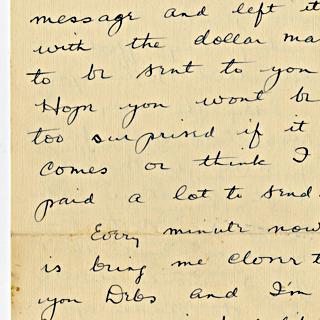 message and left it
with the dollar ma
to be sent to you
Hope you wont be
too surprised if it
comes or think I
paid a lot to send.
Every minute now
is bring me closer t
you Debs and I'm